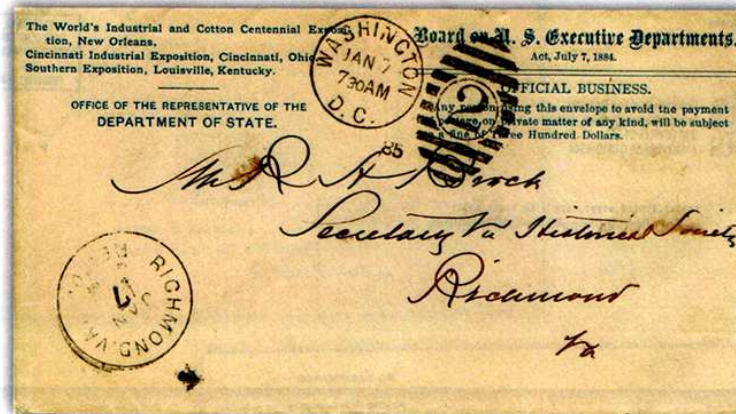 The World's Industrial and Cotton Centennial Exposi-
tion, New Orleans.
Cincinnati Industrial Exposition, Cincinnati, Ohio.
Southern Exposition, Louisville, Kentucky.
OFFICE OF THE REPRESENTATIVE OF THE
DEPARTMENT OF STATE.
WASHINGTON
JAN 7
730AM
D.C.
85
2
Board on U. S. Executive Departments.
Act, July 7, 1884.
OFFICIAL BUSINESS.
Any person using this envelope to avoid the payment
of postage on private matter of any kind, will be subject
to a fine of Three Hundred Dollars.
Mr R A Brock
Secretary Va Historical Society
Richmond
Va
RICHMOND, VA.
REC'D.
JAN
7